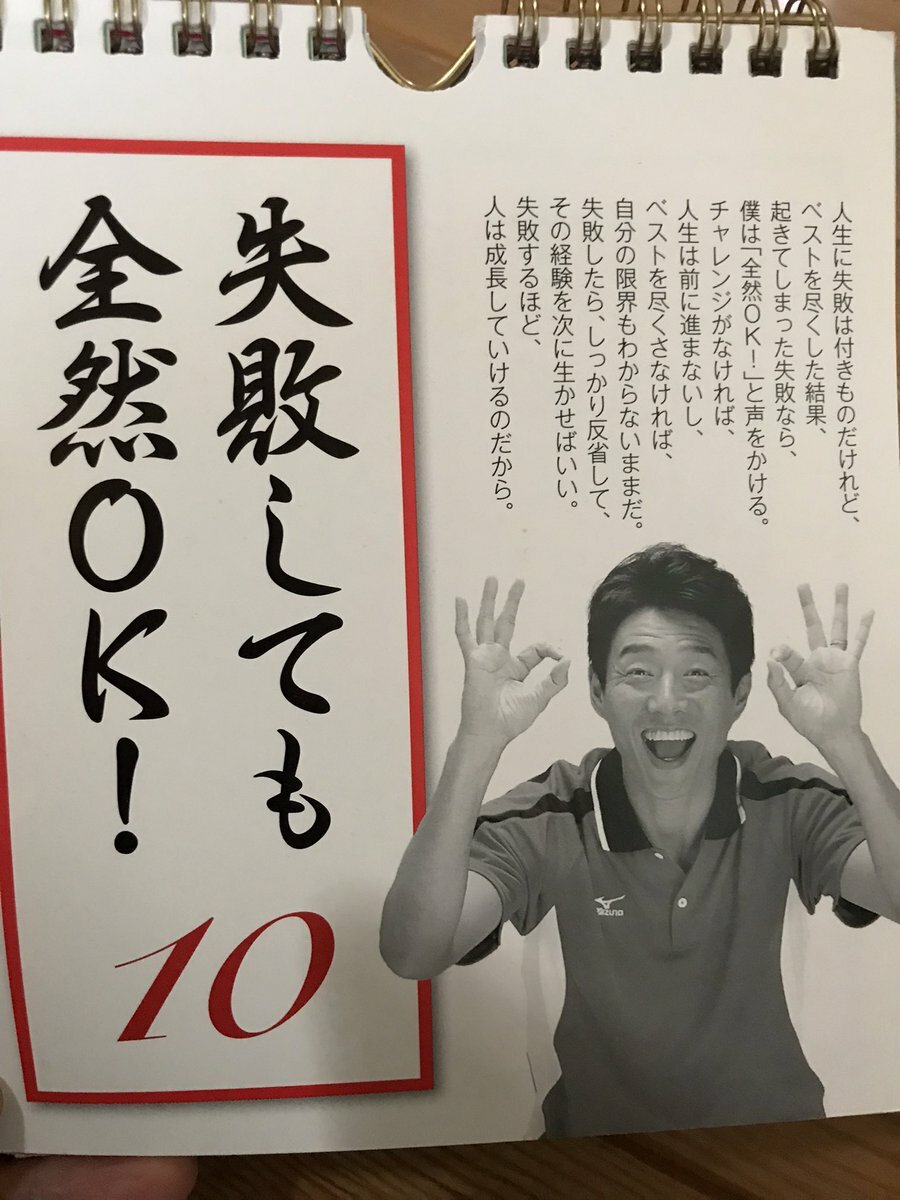 人生に失敗は付きものだけれど、
ベストを尽くした結果、
起きてしまった失敗なら、
僕は「全然OK!」と声をかける。
チャレンジがなければ、
人生は前に進まないし、
ベストを尽くさなければ、
自分の限界もわからないままだ。
失敗したら、しっかり反省して、
その経験を次に生かせばいい。
失敗するほど、
人は成長していけるのだから。
失敗しても
全然OK!
10
MIZUNO